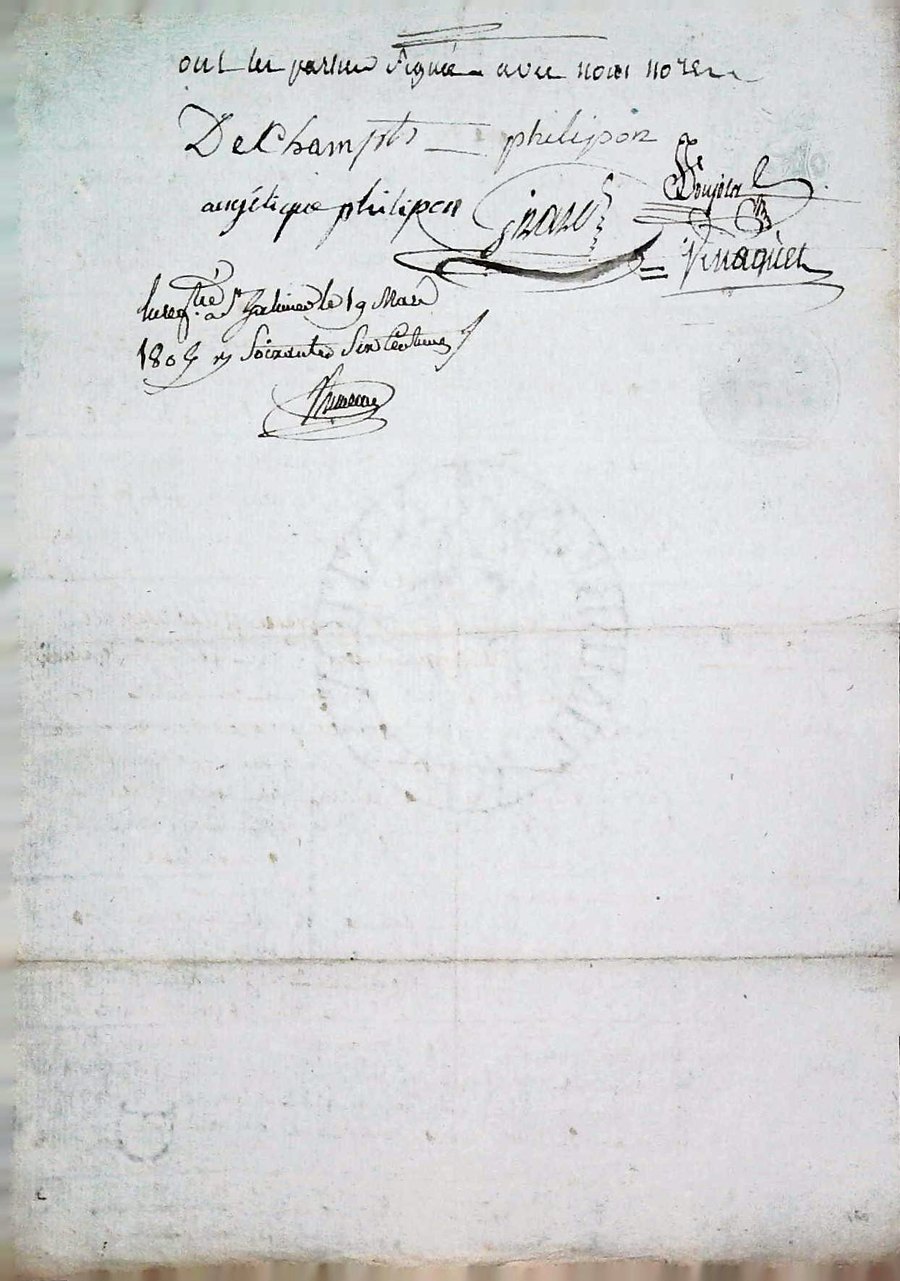 ont les parties signée avec nous nore
DeChampts philipon
angélique philipon Girard
Vinaquet
Enreg.tré a St Galmier le 19 Mars
180 Soixante Six Centimes